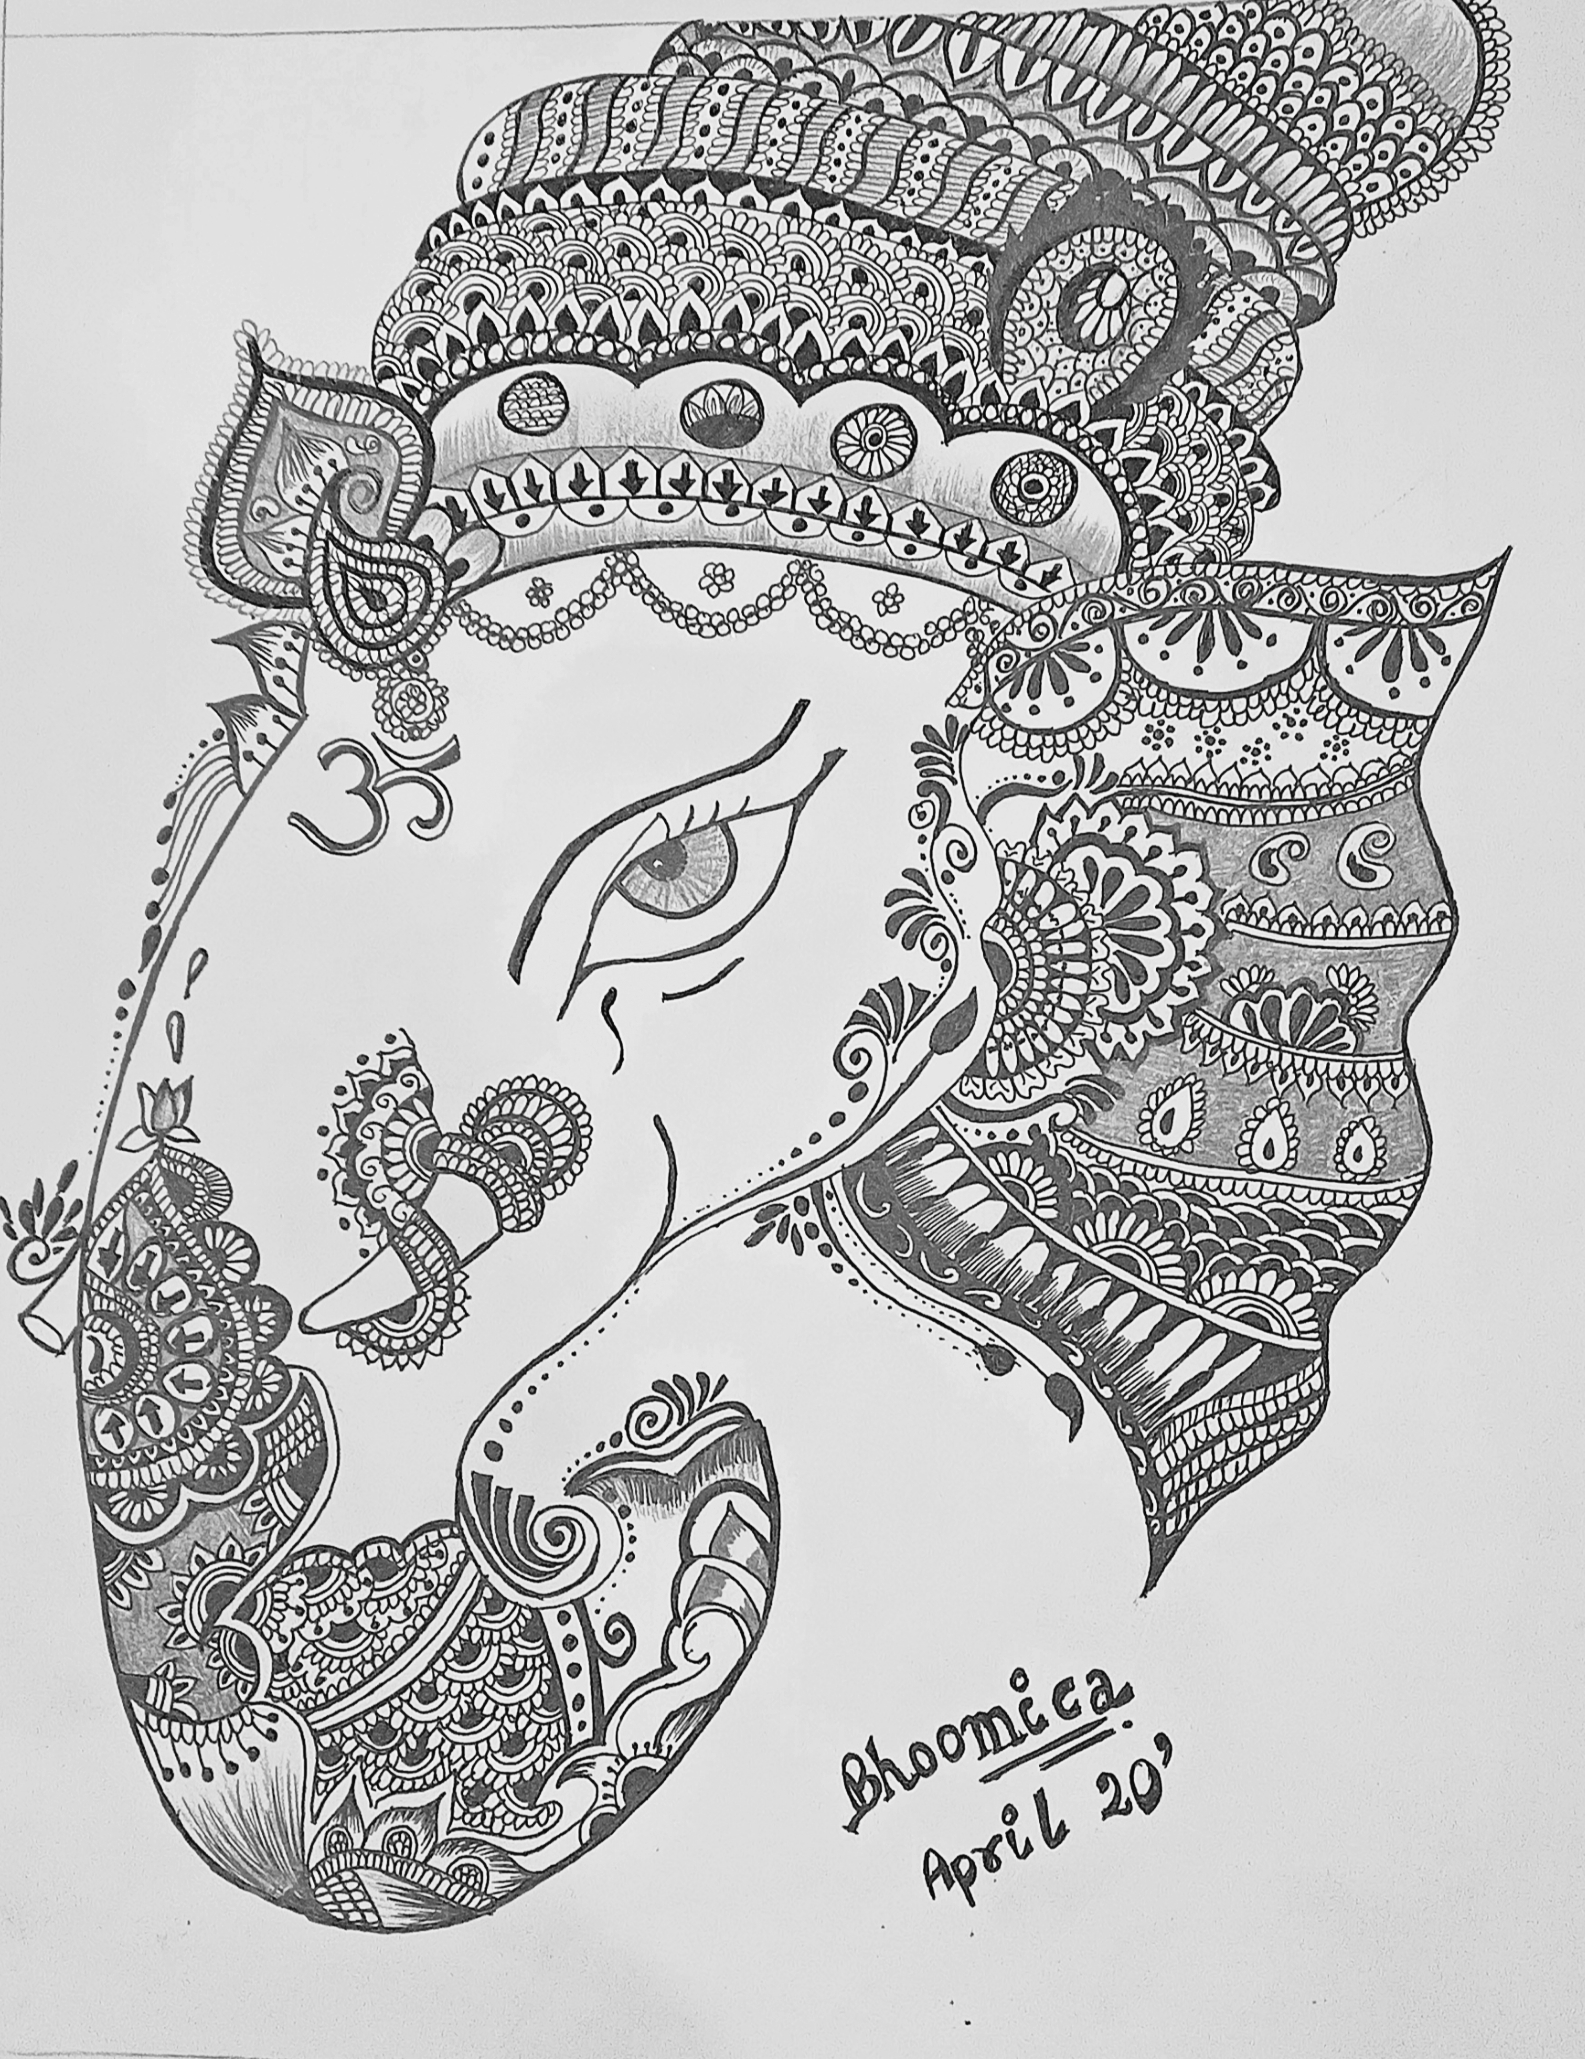 ॐ
Bhoomica
April 20'